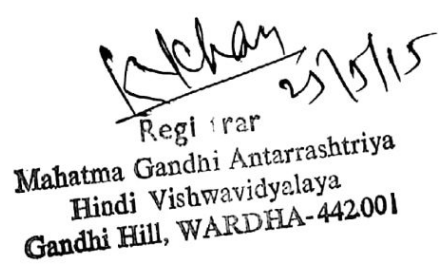 25/5/15
Regi trar
Mahatma Gandhi Antarrashtriya
Hindi Vishwavidyalaya
Gandhi Hill, WARDHA-442.001